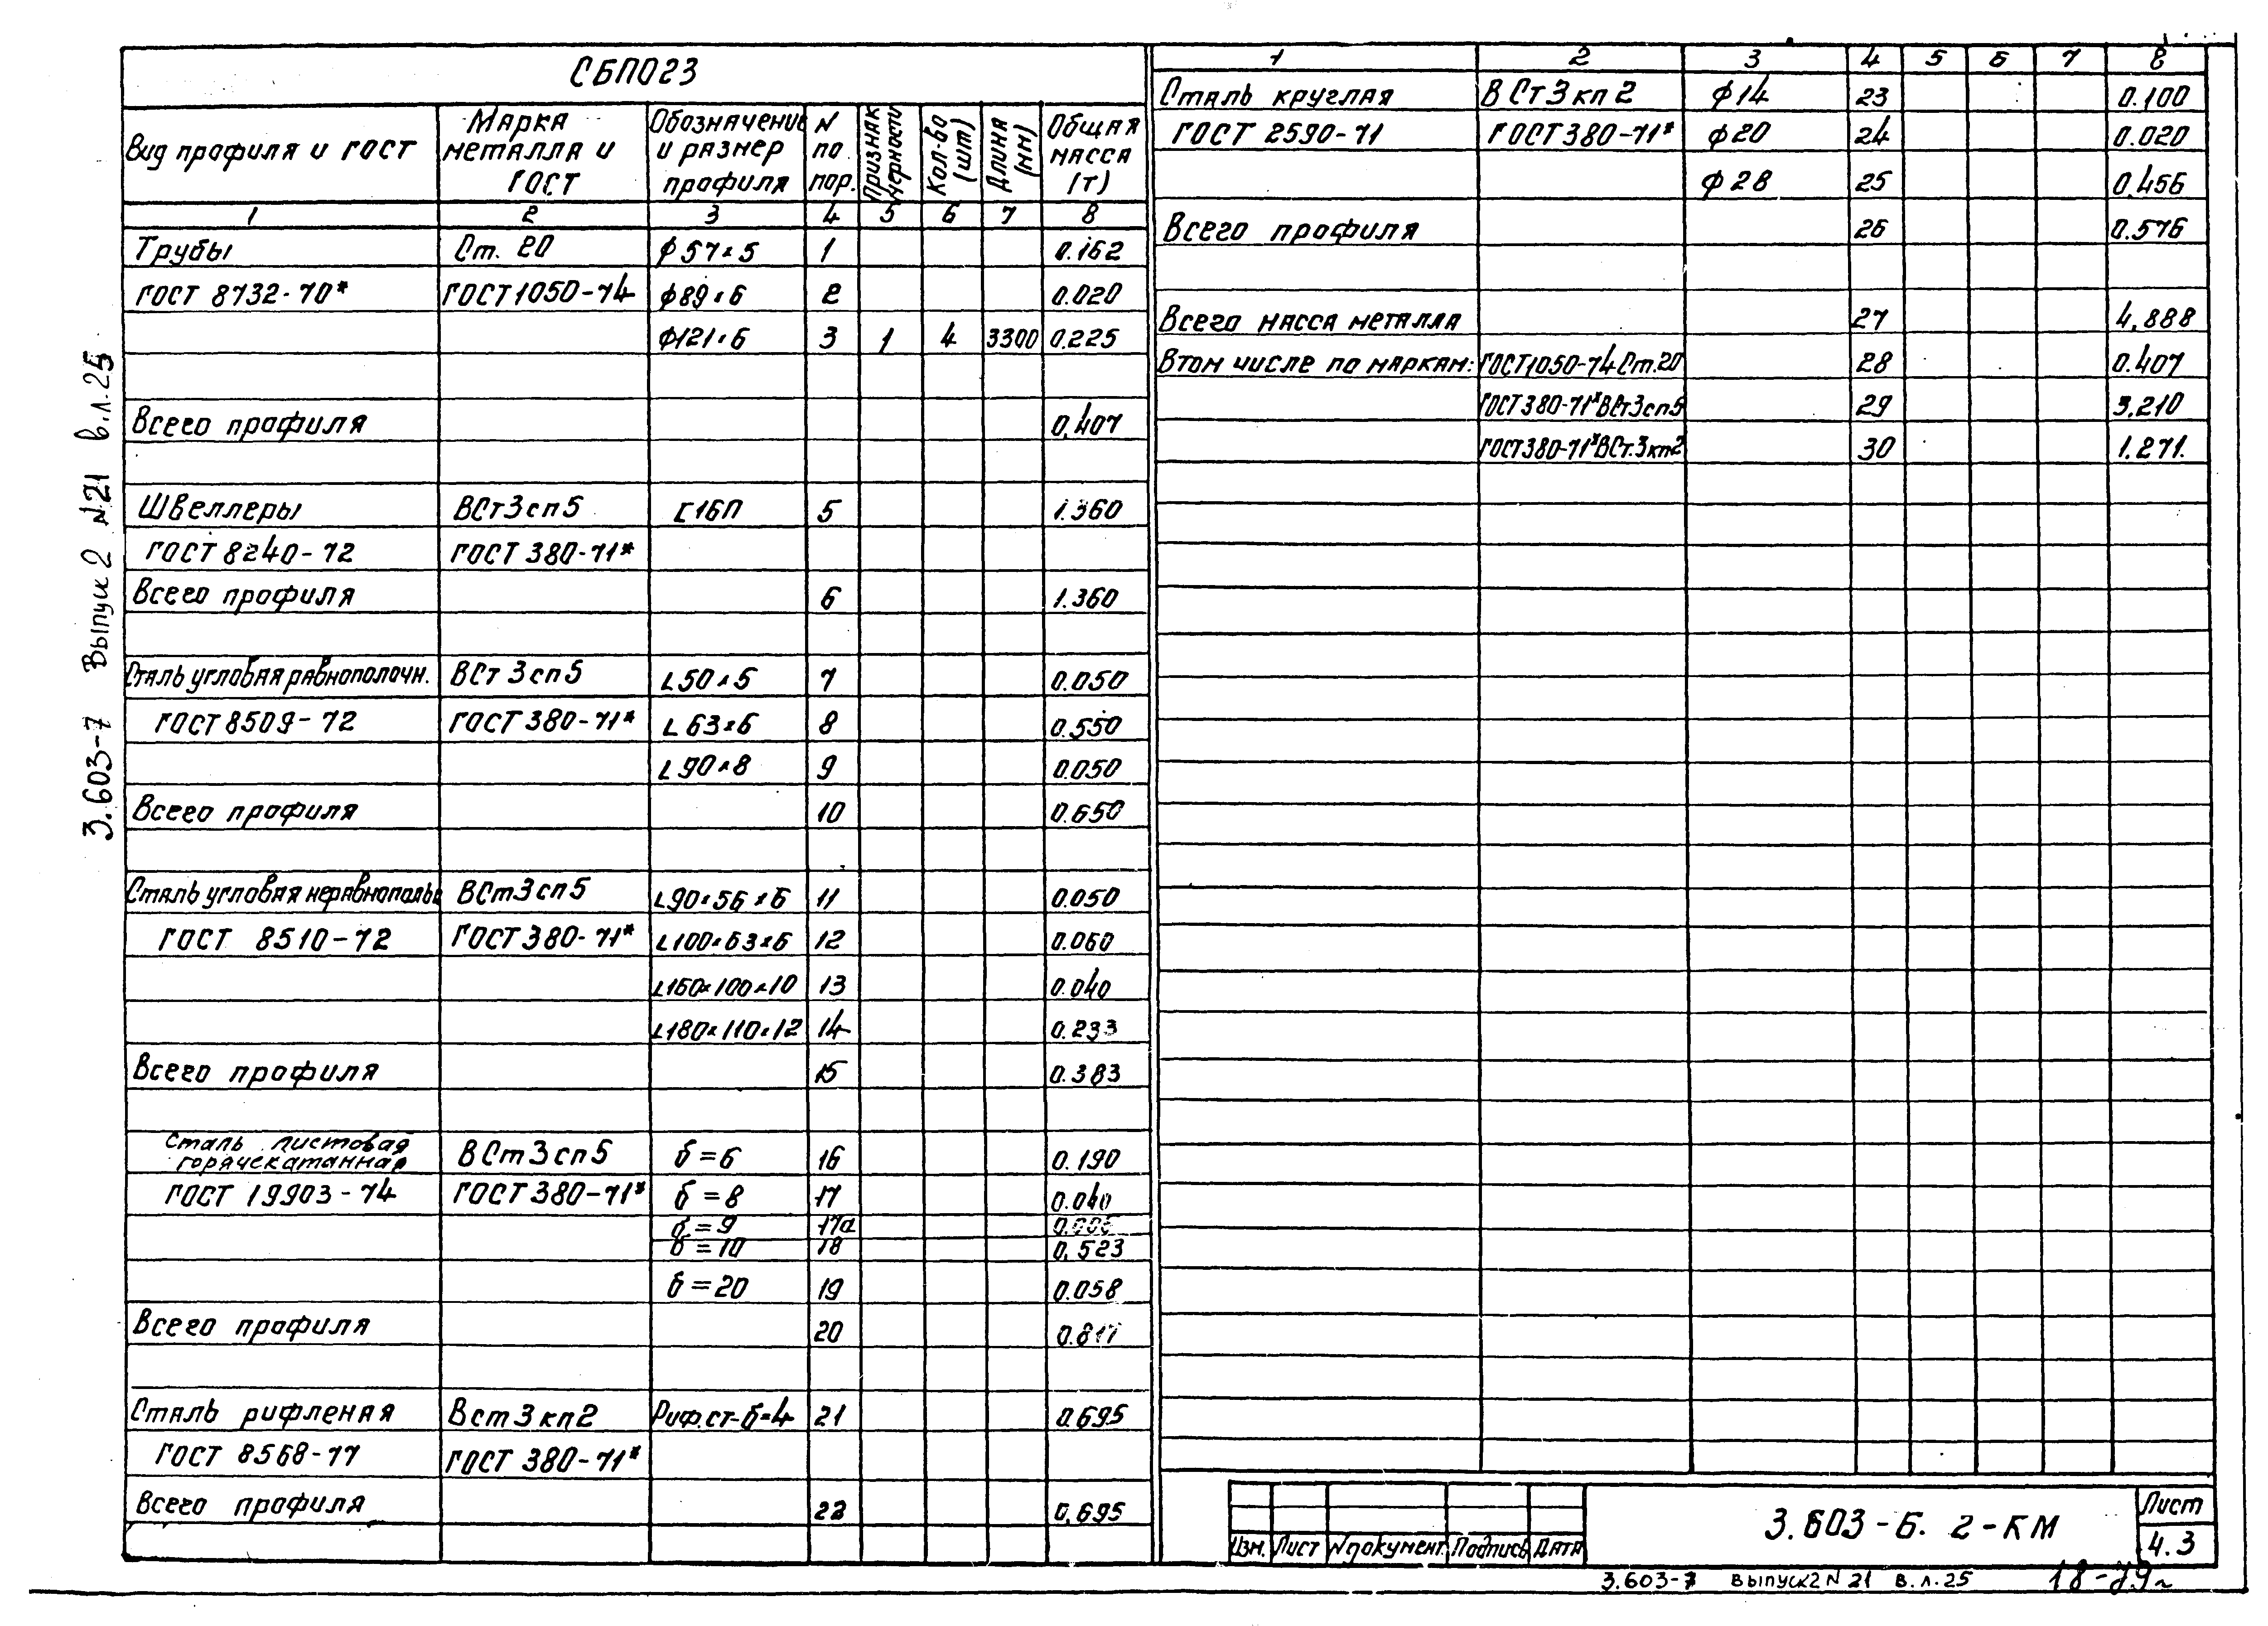 СБП023
Вид профиля и ГОСТ | Марка металла и ГОСТ | Обозначение и размер профиля | N по пор. | Признак черности | Кол-во (шт) | Длина (мм) | Общая масса (т)
1 2 3 4 5 6 7 8
Трубы Ст. 20 ф57×5 1 0.162
ГОСТ 8732-70* ГОСТ 1050-74 ф89×6 2 0.020
ф121×6 3 1 4 3300 0.225
Всего профиля 0.407
Швеллеры ВСт3сп5 [16П 5 1.360
ГОСТ 8240-72 ГОСТ 380-71*
Всего профиля 6 1.360
Сталь угловая равнополочн. ВСт3сп5 L50×5 7 0.050
ГОСТ 8509-72 ГОСТ 380-71* L63×6 8 0.550
L90×8 9 0.050
Всего профиля 10 0.650
Сталь угловая ВСт3сп5 L90×56×6 11 0.050
ГОСТ 8510-72 ГОСТ 380-71* L100×63×6 12 0.060
L160×100×10 13 0.040
L180×110×12 14 0.233
Всего профиля 15 0.383
Сталь листовая
горячекатанная ВСт3сп5 б=6 16 0.190
ГОСТ 19903-74 ГОСТ 380-71* б=8 17 0.040
б=9 17а
б=10 18 0.523
б=20 19 0.058
Всего профиля 20 0.817
Сталь рифленая Вст3кп2 Риф.ст-б=4 21 0.695
ГОСТ 8568-77 ГОСТ 380-71*
Всего профиля 22 0.695
1 2 3 4 5 6 7 8
Сталь круглая ВСт3кп2 ф14 23 0.100
ГОСТ 2590-71 ГОСТ 380-71* ф20 24 0.020
ф28 25 0.456
Всего профиля 26 0.576
Всего масса металла 27 4.888
В том числе по маркам: ГОСТ1050-74 Ст.20 28 0.407
ГОСТ380-71*ВСт3сп5 29 3.210
ГОСТ380-71*ВСт.3кп2 30 1.271
Изм. Лист N документ. Подпись Дата
3.603-Б. 2-КМ
Лист
4.3
3.603-7 выпуск2 N 21 в.л.25
18-79
3.603-7 Выпуск 2 N21 в.л.25